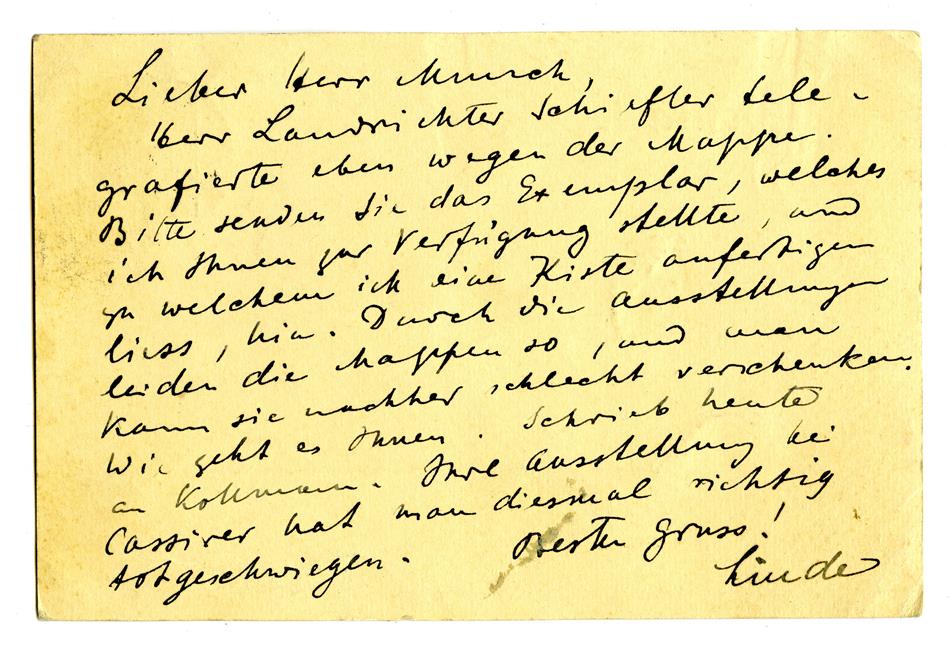 Lieber Herr Munch,
Herr Landrichter Schiefler tele-
grafierte eben wegen der Mappe.
Bitte senden Sie das Exemplar, welches
ich Ihnen zur Verfügung stellte, und
zu welchem ich eine Kiste anfertigen
liess, hin. Durch die Ausstellungen
leiden die Mappen so, und man
kann sie nachher schlecht verschenken.
Wie geht es Ihnen. Schrieb heute
an Kollmann. Ihre Ausstellung bei
Cassirer hat man diesmal richtig
totgeschwiegen. Besten Gruss!
Linde